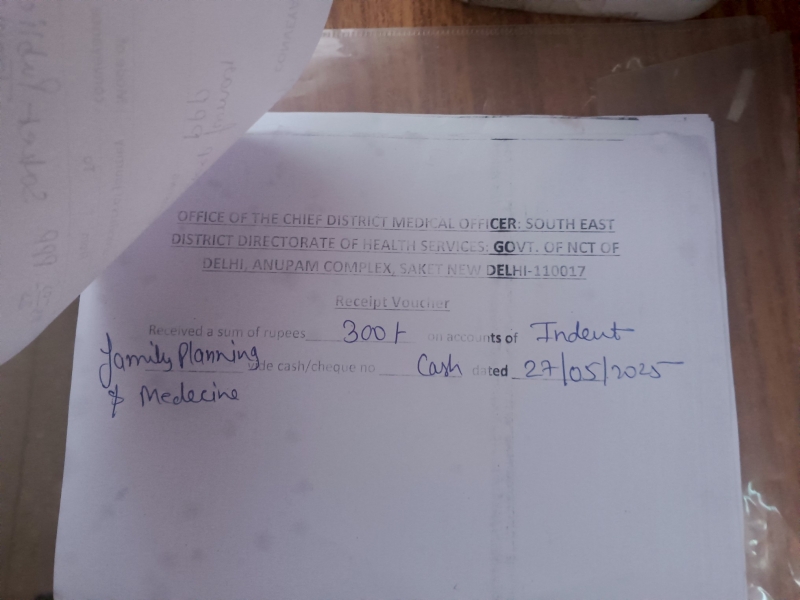 OFFICE OF THE CHIEF DISTRICT MEDICAL OFFICER: SOUTH EAST
DISTRICT DIRECTORATE OF HEALTH SERVICES: GOVT. OF NCT OF
DELHI, ANUPAM COMPLEX, SAKET NEW DELHI-110017
Receipt Voucher
Received a sum of rupees 300/- on accounts of Indent
family Planning vide cash/cheque no Cash dated 27/05/2025
& Medecine